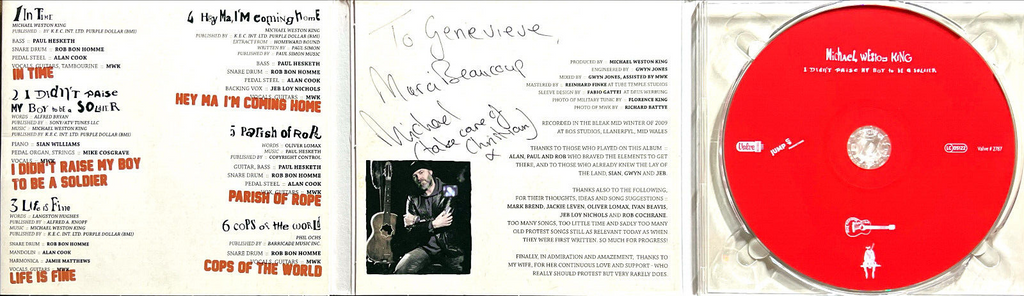 1 In Time
MICHAEL WESTON KING
PUBLISHED :: BY K.E.C. INT. LTD. PURPLE DOLLAR (BMI)
BASS :: PAUL HESKETH
SNARE DRUM :: ROB BON HOMME
PEDAL STEEL :: ALAN COOK
VOCALS, GUITARS, TAMBOURINE :: MWK
IN TIME
2 I Didn't raise
my Boy to be a SOLDIER
WORDS :: ALFRED BRYAN
PUBLISHED BY :: SONY/ATV TUNES LLC
MUSIC :: MICHAEL WESTON KING
PUBLISHED BY K.E.C. INT. LTD. PURPLE DOLLAR (BMI)
PIANO :: SIAN WILLIAMS
PEDAL ORGAN, STRINGS :: MIKE COSGRAVE
VOCALS :: MWK
I DIDN'T RAISE MY BOY
TO BE A SOLDIER
3 Life is Fine
WORDS :: LANGSTON HUGHES
PUBLISHED BY :: ALFRED A. KNOPF
MUSIC :: MICHAEL WESTON KING
PUBLISHED BY :: K.E.C. INT. LTD. PURPLE DOLLAR (BMI)
SNARE DRUM :: ROB BON HOMME
MANDOLIN :: ALAN COOK
HARMONICA :: JAMIE MATTHEWS
VOCALS, GUITARS :: MWK
LIFE IS FINE
4 Hey Ma, I'm coming home
MICHAEL WESTON KING
PUBLISHED BY :: K.E.C. INT. LTD. PURPLE DOLLAR (BMI)
EXTRACT FROM :: HOMEWARD BOUND
WRITTEN BY :: PAUL SIMON
PUBLISHED BY :: PAUL SIMON MUSIC
BASS :: PAUL HESKETH
SNARE DRUM :: ROB BON HOMME
PEDAL STEEL :: ALAN COOK
BACKING VOX :: JEB LOY NICHOLS
VOCALS, GUITARS :: MWK
HEY MA I'M COMING HOME
5 Parish of Rope
WORDS :: OLIVER LOMAX
MUSIC :: PAUL HESKETH
PUBLISHED BY :: COPYRIGHT CONTROL
GUITAR, BASS :: PAUL HESKETH
SNARE DRUM :: ROB BON HOMME
PEDAL STEEL :: ALAN COOK
VOX, GUITARS :: MWK
PARISH OF ROPE
6 Cops of the World
PHIL OCHS
PUBLISHED BY :: BARRICADE MUSIC INC.
SNARE DRUM :: ROB BON HOMME
VOCALS, GUITARS :: MWK
COPS OF THE WORLD
To Genevieve,
Merci Beaucoup
Michael
(take care of
Christian)
x
PRODUCED BY :: MICHAEL WESTON KING
ENGINEERED BY :: GWYN JONES
MIXED BY :: GWYN JONES, ASSISTED BY MWK
MASTERED BY :: REINHARD FINKE AT TUBE TEMPLE STUDIOS
SLEEVE DESIGN BY :: FABIO GATTEI AT DEUS WERBUNG
PHOTO OF MILITARY TUNIC BY :: FLORENCE KING
PHOTO OF MWK BY :: RICHARD BATTYE
RECORDED IN THE BLEAK MID WINTER OF 2009
AT BOS STUDIOS, LLANERFYL, MID WALES.
THANKS TO THOSE WHO PLAYED ON THIS ALBUM ::
ALAN, PAUL AND ROB WHO BRAVED THE ELEMENTS TO GET
THERE, AND TO THOSE WHO ALREADY KNEW THE LAY OF
THE LAND, SIAN, GWYN AND JEB.
THANKS ALSO TO THE FOLLOWING,
FOR THEIR THOUGHTS, IDEAS AND SONG SUGGESTIONS ::
MARK BREND, JACKIE LEVEN, OLIVER LOMAX, IVAN BEAVIS,
JEB LOY NICHOLS AND ROB COCHRANE.
TOO MANY SONGS, TOO LITTLE TIME AND SADLY TOO MANY
OLD PROTEST SONGS STILL AS RELEVANT TODAY AS WHEN
THEY WERE FIRST WRITTEN. SO MUCH FOR PROGRESS!
FINALLY, IN ADMIRATION AND AMAZEMENT, THANKS TO
MY WIFE, FOR HER CONTINUOUS LOVE AND SUPPORT - WHO
REALLY SHOULD PROTEST BUT VERY RARELY DOES.
Michael Weston KING
I DIDN'T RAISE MY BOY TO BE A SOLDIER
Valve
JUMP
LC 09122
Valve # 2787